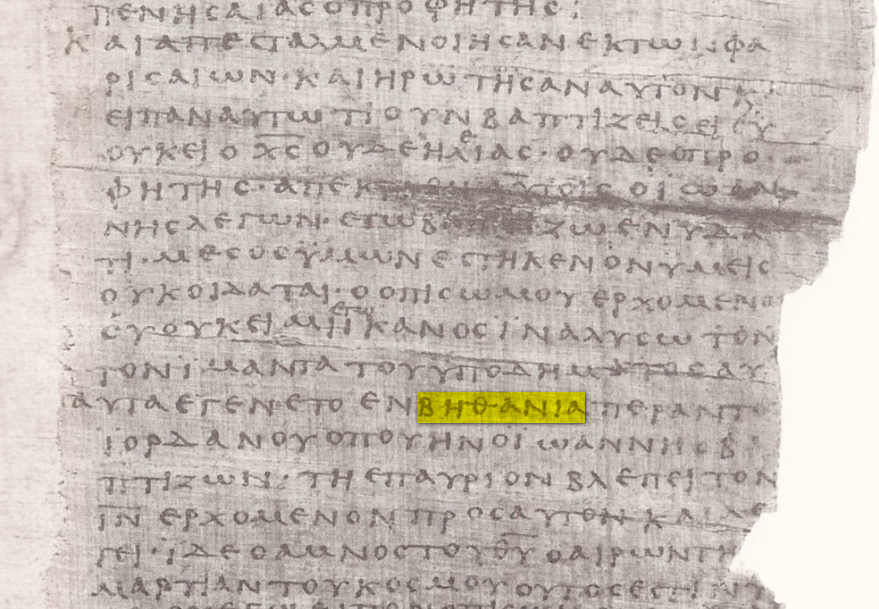 ΠΕΝΗϹΑΙΑϹΟΠΡΟΦΗΤΗϹ:
ΚΑΙΑΠΕϹΤΑΛΜΕΝΟΙΗϹΑΝΕΚΤΩΝ·ΦΑ
ΡΙϹΑΙΩΝ·ΚΑΙΗΡΩΤΗϹΑΝΑΥΤΟΝΚ
ΕΙΠΑΝΑΥΤΩΤΙΟΥΝΒΑΠΤΙΖΕΙϹΕΙϹΥ
ΟΥΚΕΙΟΧ̅Ϲ̅ΟΥΔΕΗΛΙΑϹ·ΟΥΔΕΟΠΡΟ
ΦΗΤΗϹ·ΑΠΕΚ ΟΪΩΑΝ
ΝΗϹΛΕΓΩΝ·ΕΓΩΒ ΖΩΕΝΥΔΑ
ΤΙ·ΜΕϹΟϹΫΜΩΝΕϹΤΗΚΕΝΟΝΥΜΕΙϹ
ΟΥΚΟΙΔΑΤΑΙ·ΟΟΠΙϹΩΜΟΥΕΡΧΟΜΕΝΟ
ϹΥΟΥΚΕΙΜΙΪΚΑΝΟϹΪΝΑΛΥϹΩΤΟΝ
ΤΟΝΙΜΑΝΤΑΤΟΥΫΠΟΔΗΜΑΤΟϹΑΥ
ΑΥΤΑΕΓΕΝΕΤΟΕΝΒΗΘΑΝΙΑΠΕΡΑΝΤ
ΙΟΡΔΑΝΟΥΟΠΟΥΗΝΟΪΩΑΝΝΗϹΒ
ΠΤΙΖΩΝ·ΤΗΕΠΑΥΡΙΟΝΒΛΕΠΕΙΤΟΝ
Ι̅Ν̅ΕΡΧΟΜΕΝΟΝΠΡΟϹΑΥΤΟΝΚΑΙΛΕ
ΓΕΙ·ΪΔΕΟΑΜΝΟϹΤΟΥΘ̅Υ̅ΟΑΙΡΩΝΤΗ
ΑΜΑΡΤΙΑΝΤΟΥΚΟϹΜΟΥΟΥΤΟϹΕϹΤΙΝΥ